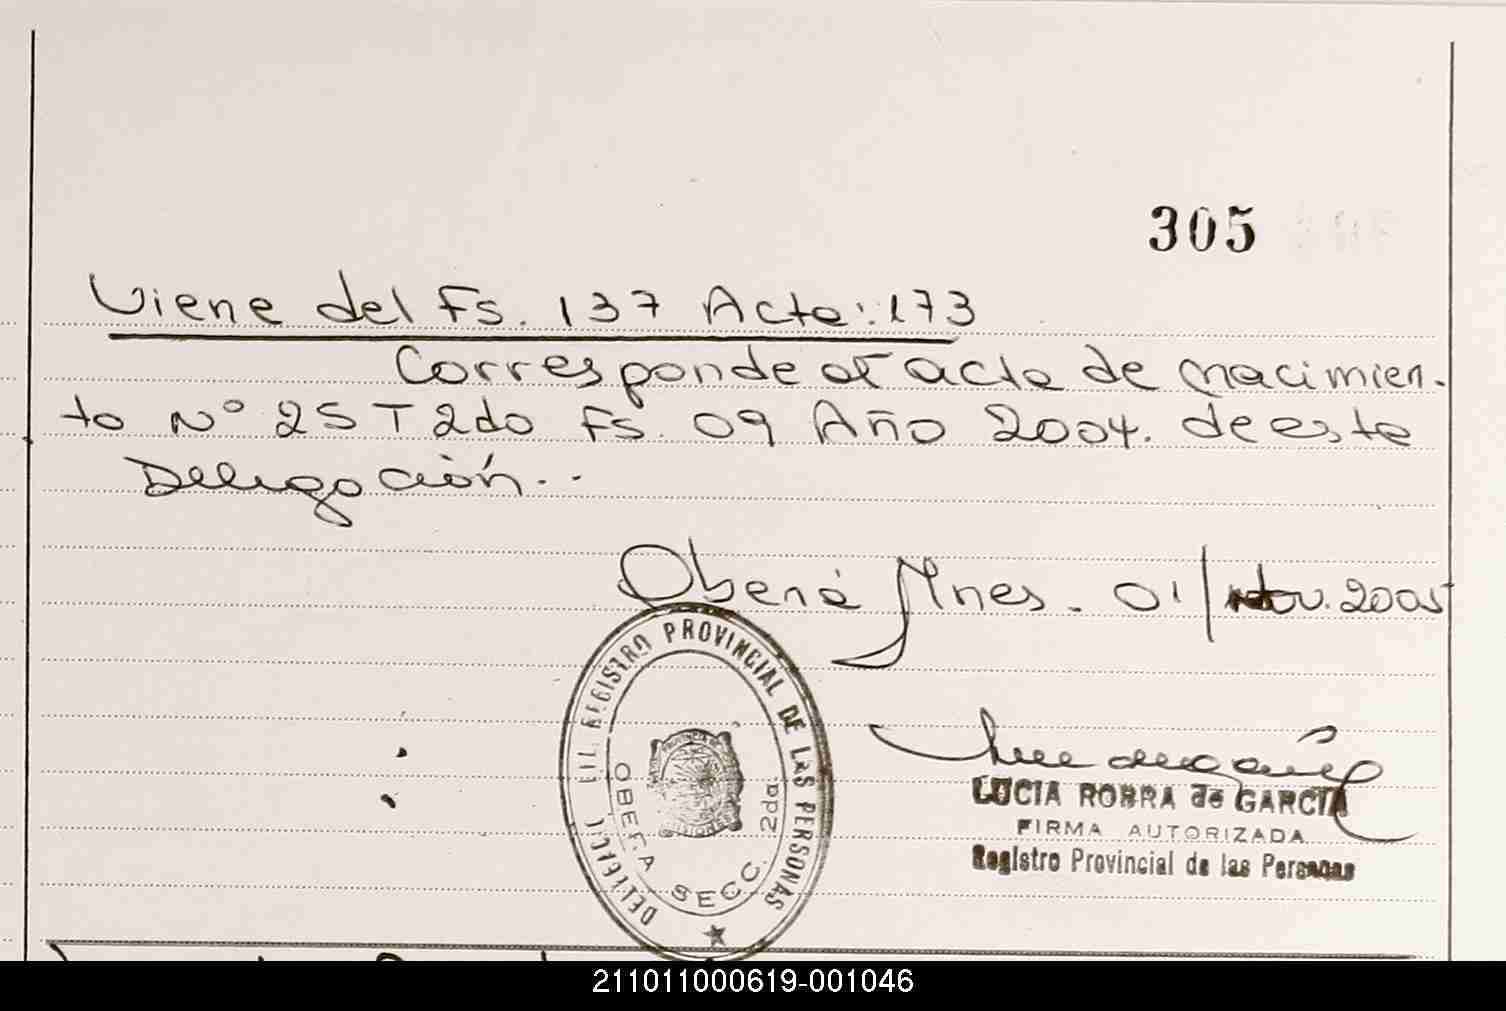 305
Viene del Fs. 137 Acta: 173
Corresponde al acta de nacimien-
to Nº 25 T 2do Fs. 09 Año 2004. de esta
Delegación.-
Oberá Mnes. 01/Nov. 2005
REGISTRO PROVINCIAL DE LAS PERSONAS
OBERA SECC. 2da.
LUCIA ROBRA de GARCIA
FIRMA AUTORIZADA
Registro Provincial de las Personas
211011000619-001046